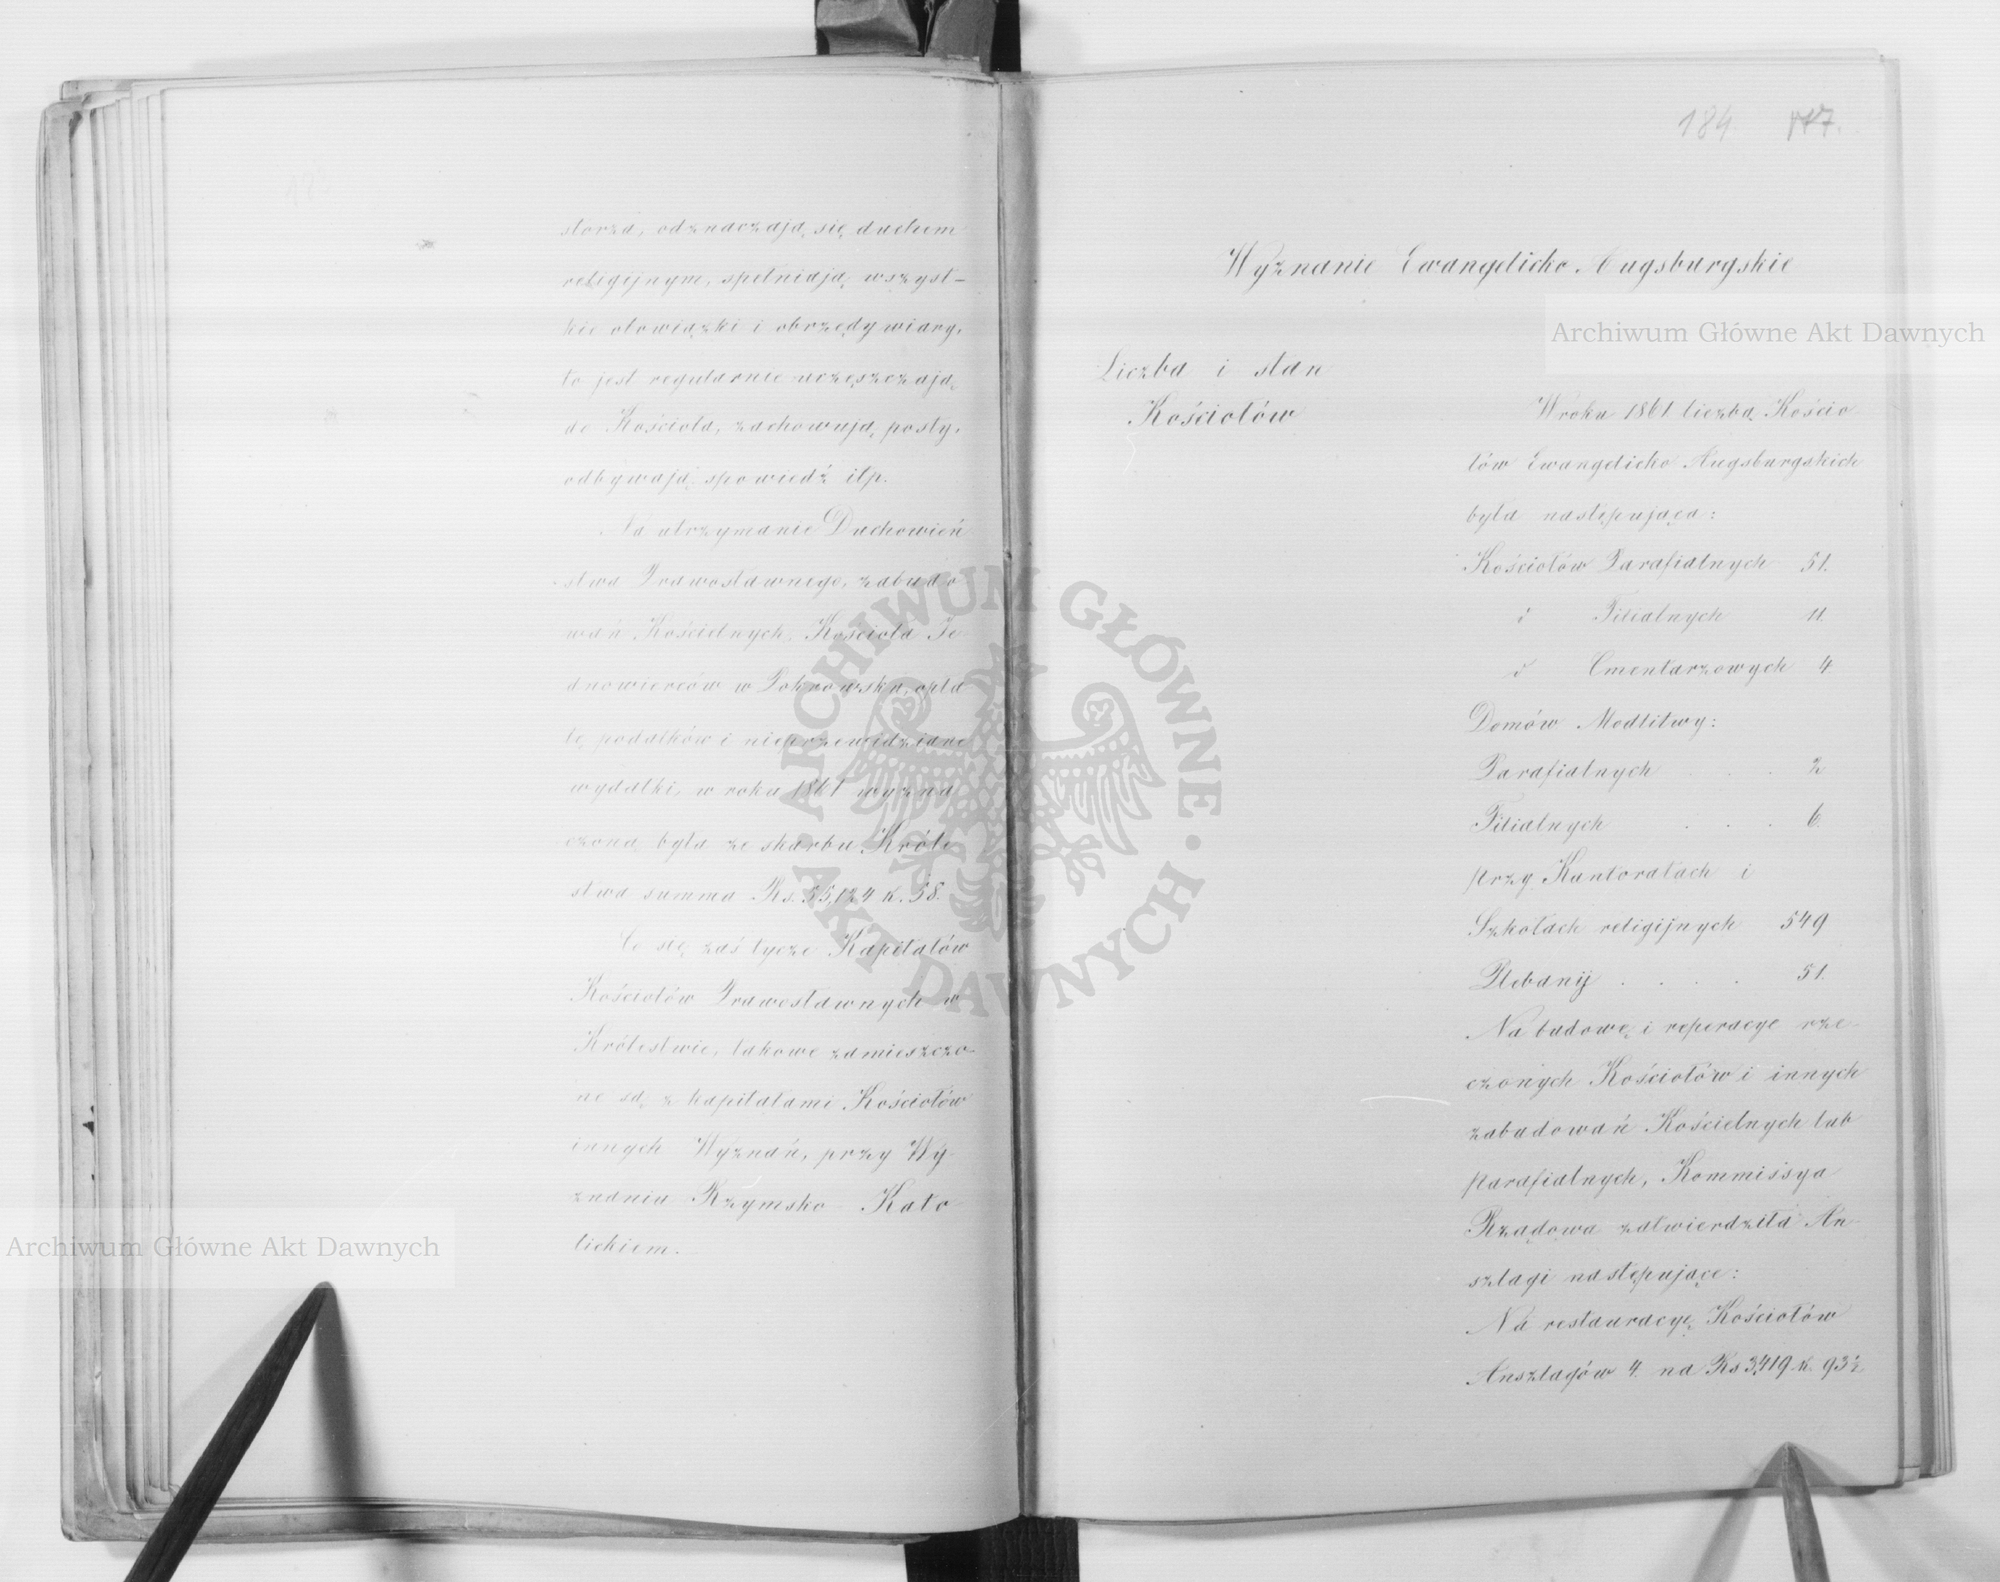 storza, odznaczają się duchem
religijnym, spełniają wszyst-
kie obowiązki i obrzędy wiary,
to jest regularnie uczęszczają
do Kościoła, zachowują posty,
odbywają spowiedź itp.
Na utrzymanie Duchowień
stwa Prawosławnego, zabudo
wań Kościelnych, Kościoła Je
dnowierców w Pokrowsku, opła
tę podatków i nieprzewidziane
wydatki, w roku 1861 wyzna
czona była ze skarbu Króle
stwa summa Rs. 55,124 k. 58.
Co się zaś tycze Kapitałów
Kościołów Prawosławnych w
Królestwie, takowe zamieszczo-
ne są z kapitałami Kościołów
innych Wyznań, przy Wy-
znaniu Rzymsko Kato
lickiem.
184
Wyznanie Ewangelicko-Augsburgskie
Liczba i stan
Kościołów
W roku 1861 liczba Kościo
łów Ewangelicko Augsburgskich
była następująca:
Kościołów Parafialnych 51.
d Filialnych 11.
d Cmentarzowych 4
Domów Modlitwy:
Parafialnych . . 2
Filialnych . . . 6.
przy Kantoratach i
Szkołach religijnych 549
Plebanij . . . . 51.
Na budowę i reperacye rze-
czonych Kościołów i innych
zabudowań Kościelnych lub
parafialnych, Kommissya
Rządowa zatwierdziła An
szlagi następujące:
Na restauracyę Kościołów
Anszlagów 4. na Rs 3,419 k. 93½
Archiwum Główne Akt Dawnych
Archiwum Główne Akt Dawnych
ARCHIWUM GŁÓWNE · AKT DAWNYCH ·